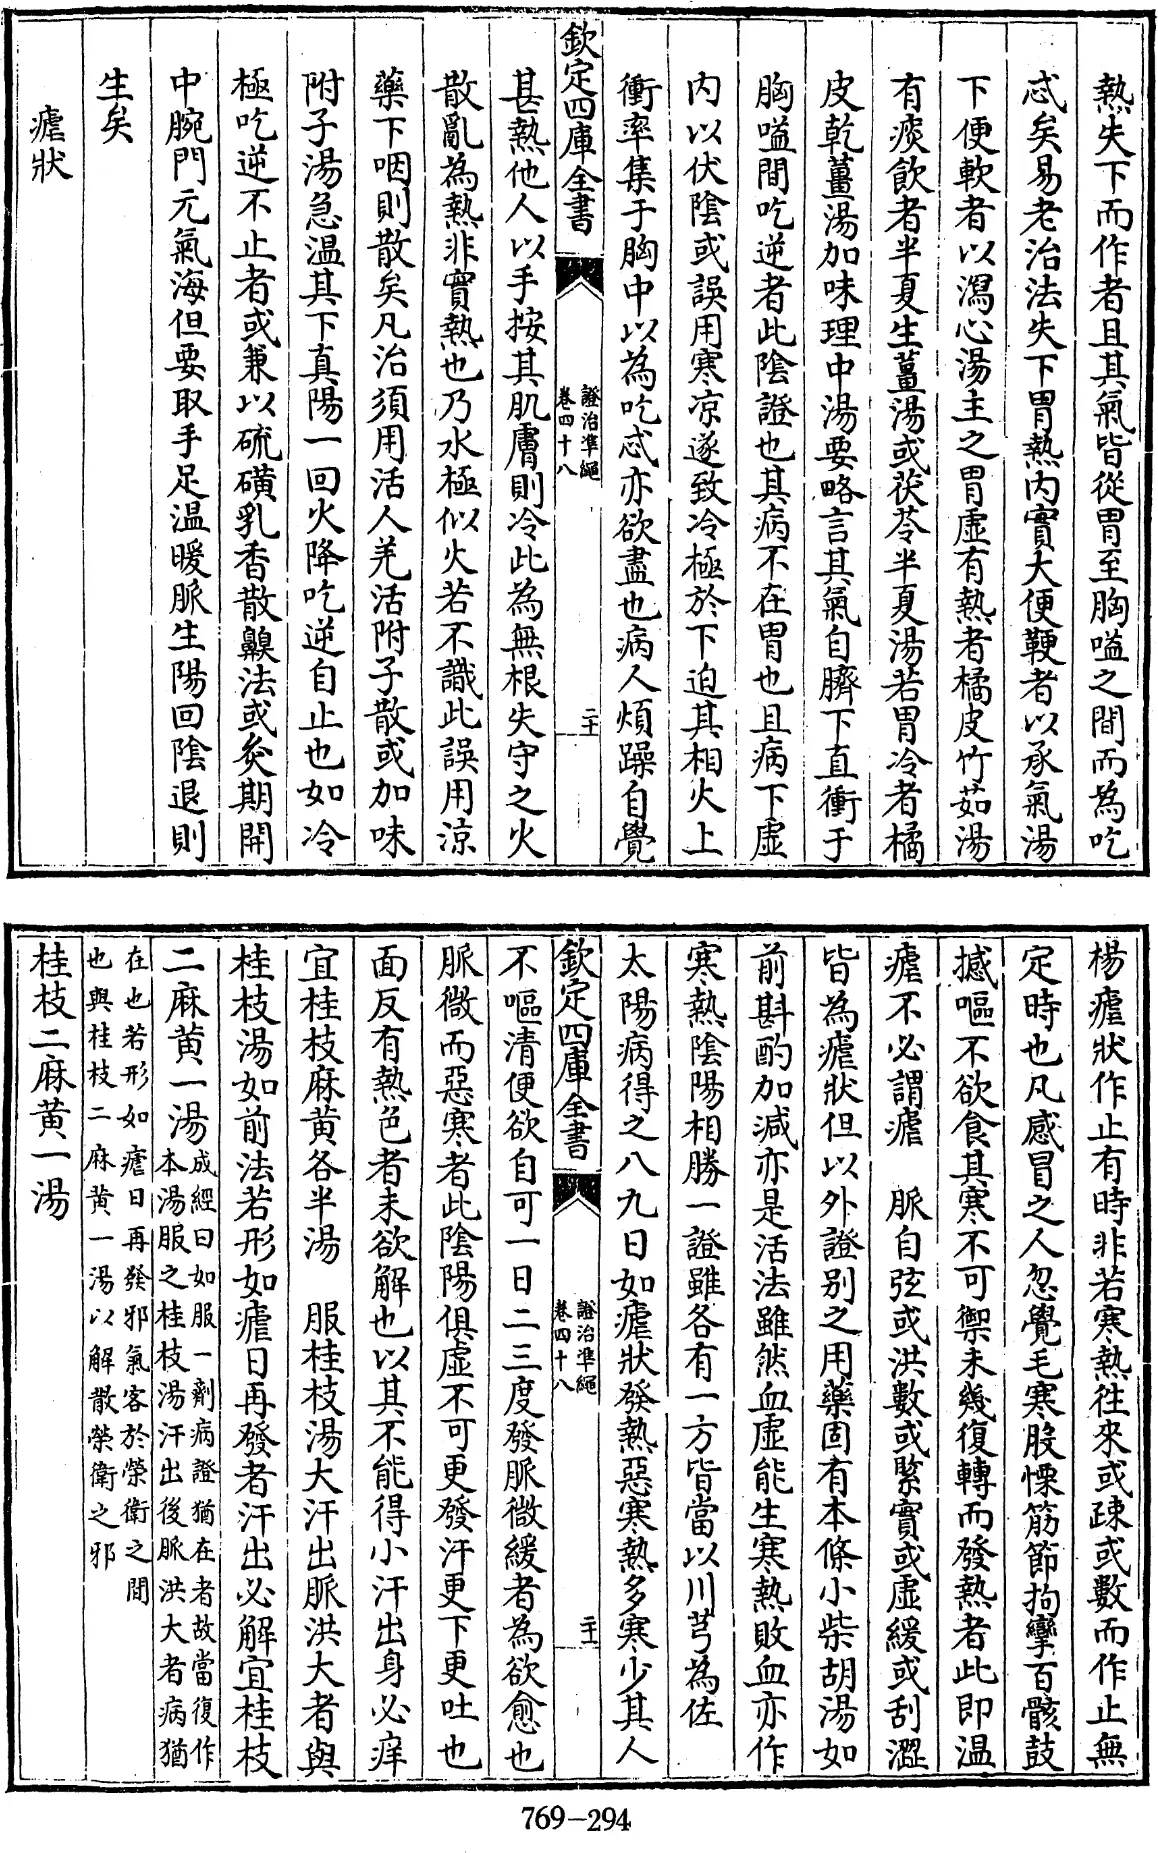 熱失下而作者且其氣皆從胃至胸嗌之間而為吃
忒矣易老治法失下胃熱内實大便鞕者以承氣湯
下便軟者以瀉心湯主之胃虛有熱者橘皮竹茹湯
有痰飲者半夏生薑湯或茯苓半夏湯若胃冷者橘
皮乾薑湯加味理中湯要略言其氣自臍下直衝于
胸嗌間吃逆者此陰證也其病不在胃也且病下虛
内以伏陰或誤用寒凉遂致冷極於下迫其相火上
衝率集于胸中以為吃忒亦欲盡也病人煩躁自覺
欽定四庫全書
證治準繩
卷四十八
二十
甚熱他人以手按其肌膚則冷此為無根失守之火
散亂為熱非實熱也乃水極似火若不識此誤用涼
藥下咽則散矣凡治須用活人羌活附子散或加味
附子湯急温其下真陽一回火降吃逆自止也如冷
極吃逆不止者或兼以硫磺乳香散鼻臭法或灸期開
中脘門元氣海但要取手足温暖脈生陽回陰退則
生矣
瘧狀
楊瘧狀作止有時非若寒熱往來或疎或數而作止無
定時也凡感冒之人忽覺毛寒股慄筋節拘攣百骸鼓
撼嘔不欲食其寒不可禦未幾復轉而發熱者此即温
瘧不必謂瘧　脈自弦或洪數或緊實或虛緩或刮澀
皆為瘧狀但以外證别之用藥固有本條小柴胡湯如
前斟酌加減亦是活法雖然血虛能生寒熱敗血亦作
寒熱陰陽相勝一證雖各有一方皆當以川芎為佐
太陽病得之八九日如瘧狀發熱惡寒熱多寒少其人
欽定四庫全書
證治準繩
卷四十八
二十一
不嘔清便欲自可一日二三度發脈微緩者為欲愈也
脈微而惡寒者此陰陽俱虛不可更發汗更下更吐也
面反有熱色者未欲解也以其不能得小汗出身必痒
宜桂枝麻黄各半湯　服桂枝湯大汗出脈洪大者與
桂枝湯如前法若形如瘧日再發者汗出必解宜桂枝
二麻黄一湯成經曰如服一劑病證猶在者故當復作
本湯服之桂枝湯汗出後脈洪大者病猶
在也若形如瘧日再發邪氣客於榮衛之間
也與桂枝二麻黄一湯以解散榮衛之邪
桂枝二麻黄一湯
769-294